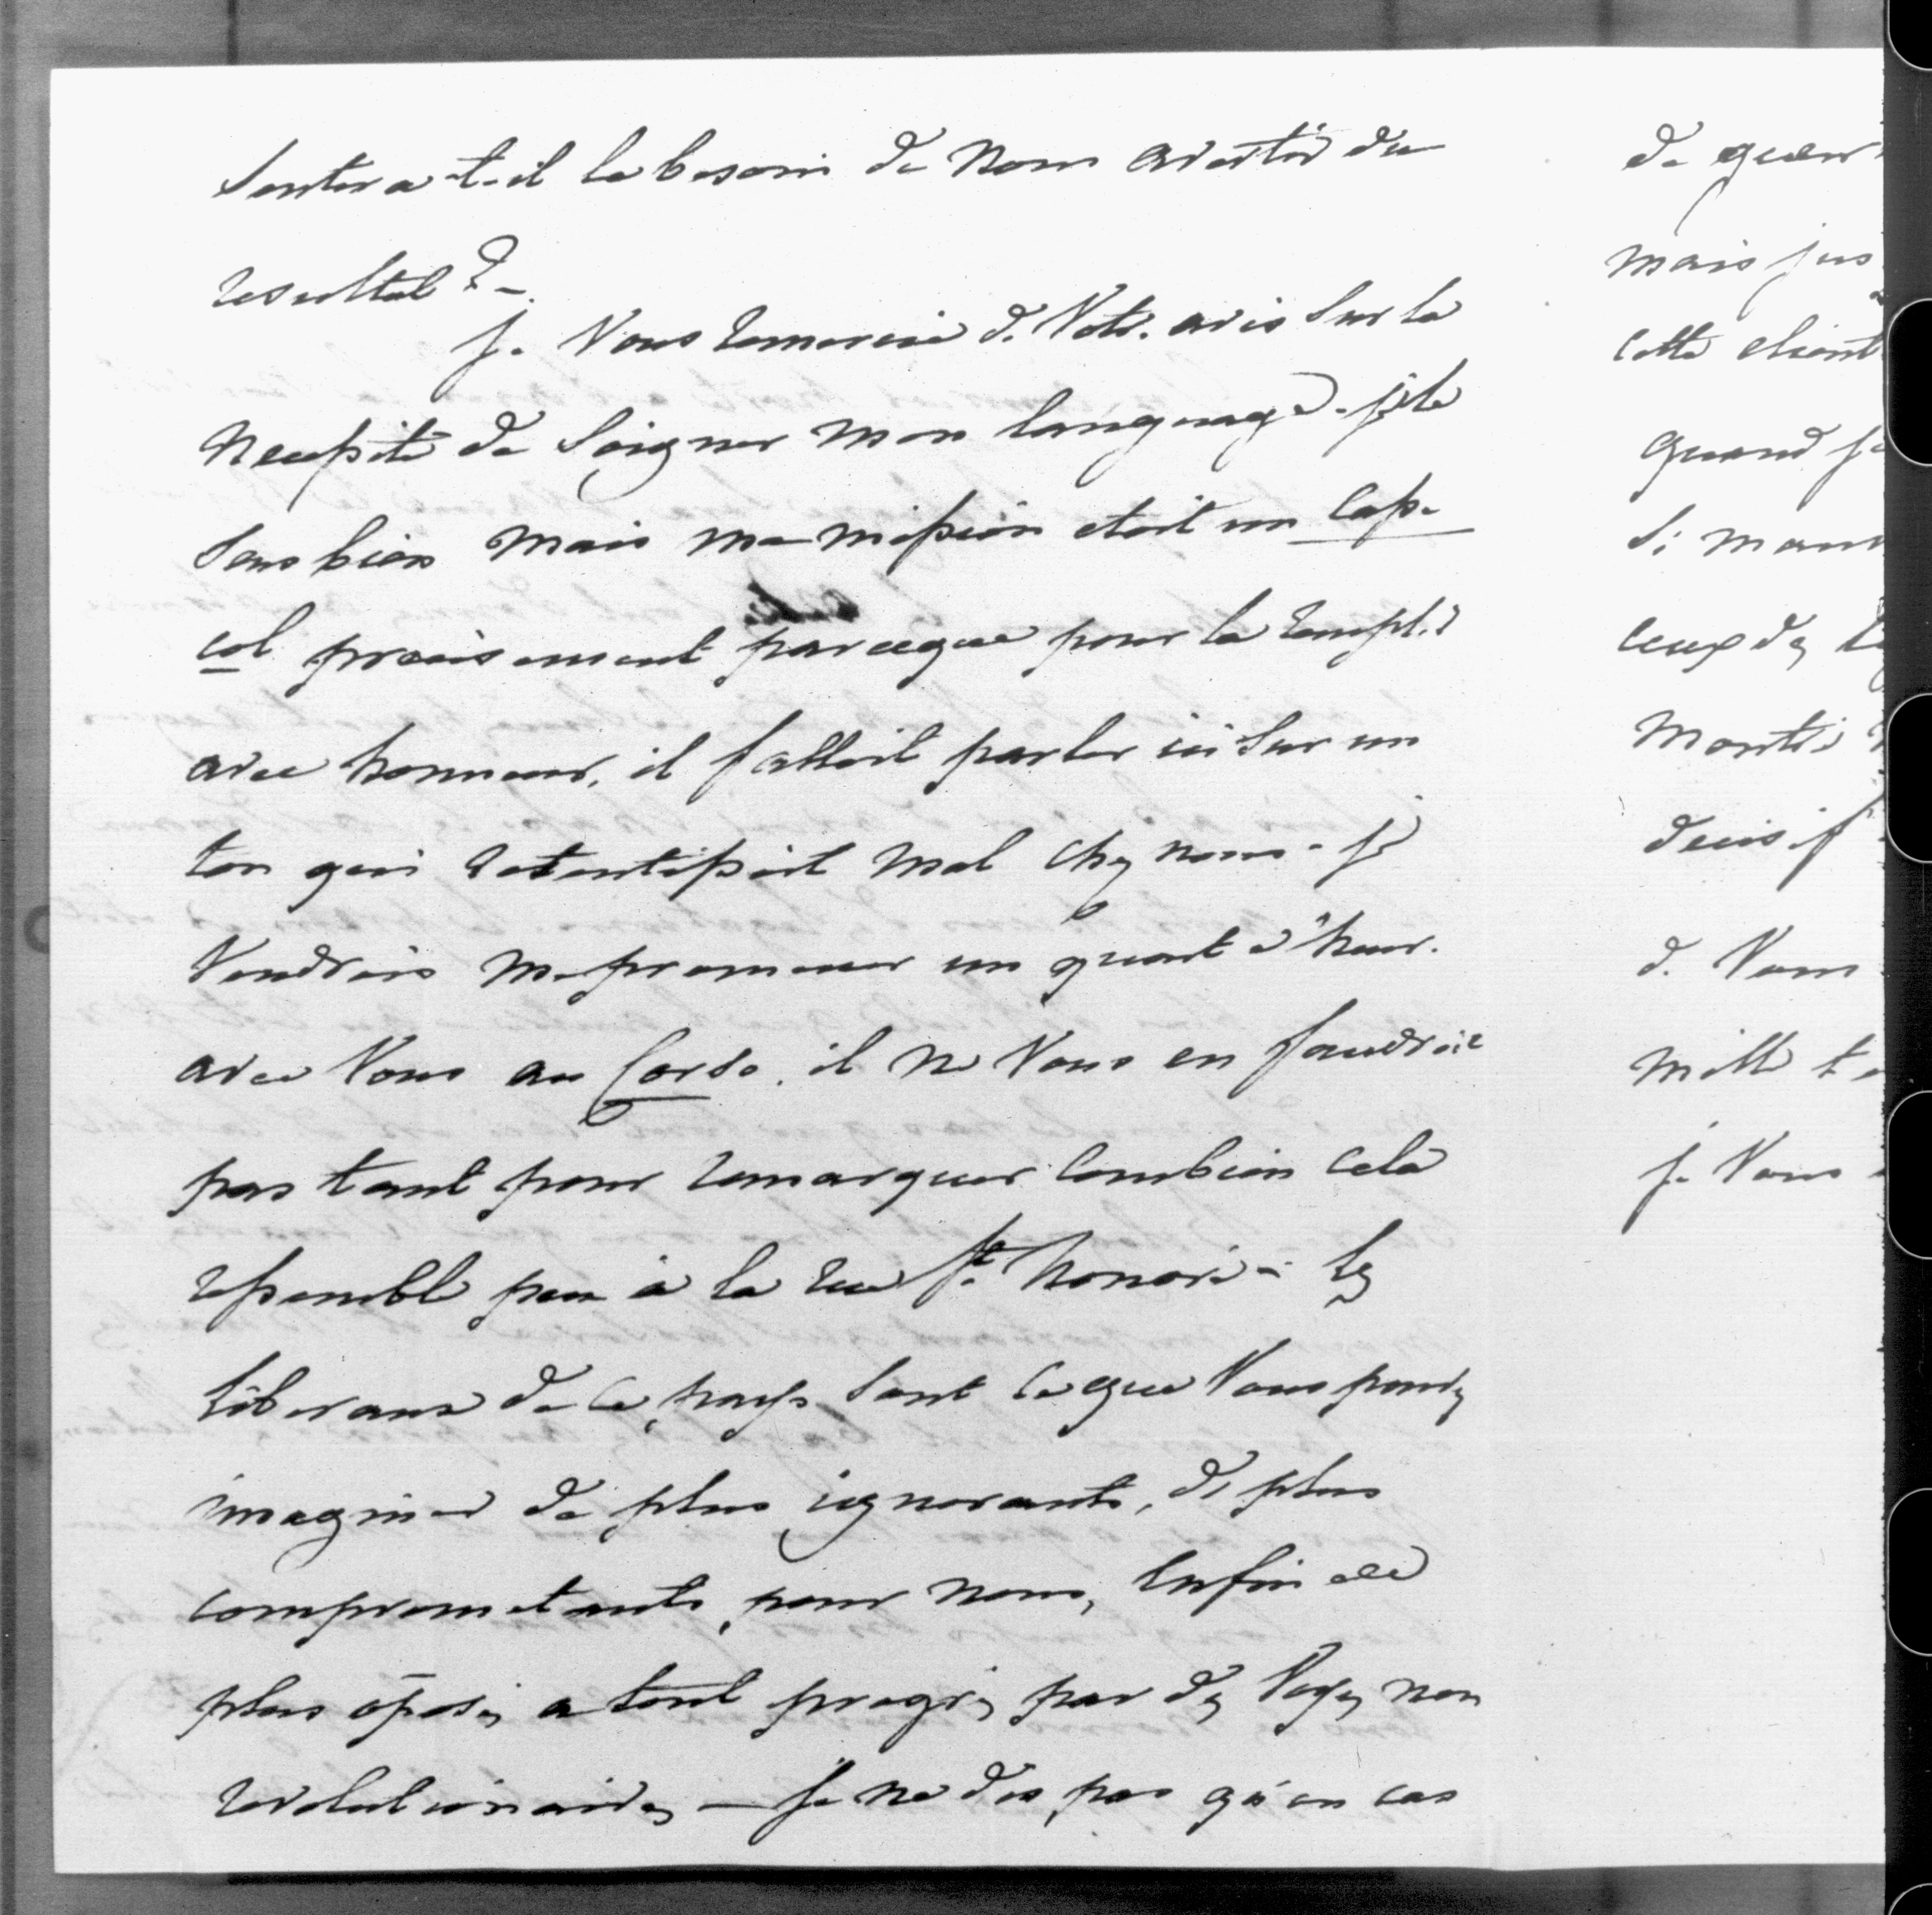 Sentira-t-il le besoin de nous avertir du
resultat ? –
je Vous remercie de Votre avis sur la
necessité de soigner mon language. je le
sens bien mais ma mission etoit un casse
col precisement parceque pour la remplir
avec honneur, il falloit parler ici sur un
ton qui retentissoit mal chez nous. je
Voudrois me promener un quart d'heure
avec Vous au Corso. il ne Vous en faudroit
pas tant pour remarquer combien cela
ressemble peu à la rue St. honoré – les
liberaux de ce pays sont ce que Vous pouvez
imaginer de plus ignorants, de plus
comprometants pour nous, enfin de
plus oposés a tout progrès par des Voyes non
revolutionaires – je ne dis pas qu'en cas
de guerr
mais jus
cette client
quand je
si mauv
ceux des
d. Vous
mille t
je Vous